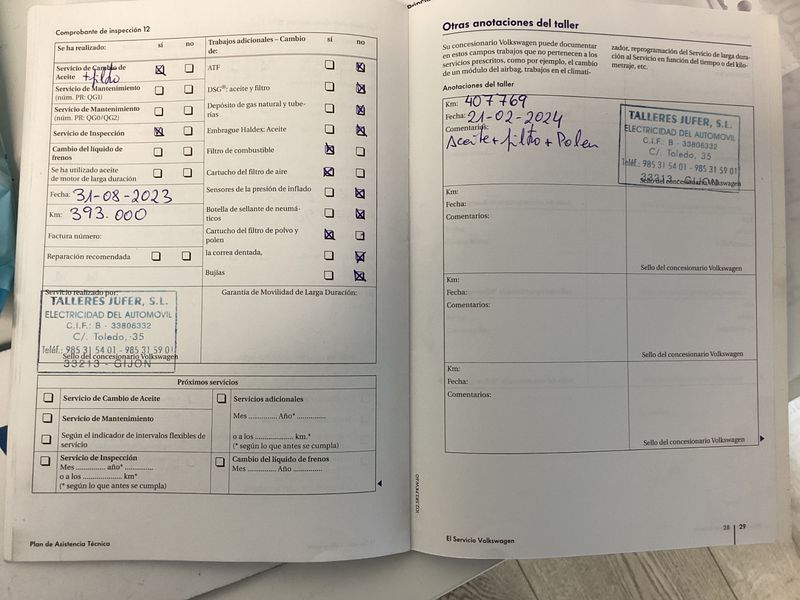 Comprobante de inspección 12
Se ha realizado: sí no
Servicio de Cambio de
Aceite + filtro
Servicio de Mantenimiento
(núm. PR: QG1)
Servicio de Mantenimiento
(núm. PR: QG0/QG2)
Servicio de Inspección
Cambio del líquido de
frenos
Se ha utilizado aceite
de motor de larga duración
Fecha: 31-08-2023
Km: 393.000
Factura número:
Reparación recomendada
Trabajos adicionales – Cambio
de: sí no
ATF
DSG®: aceite y filtro
Depósito de gas natural y tube-
rías
Embrague Haldex: Aceite
Filtro de combustible
Cartucho del filtro de aire
Sensores de la presión de inflado
Botella de sellante de neumá-
ticos
Cartucho del filtro de polvo y
polen
la correa dentada,
Bujías
Servicio realizado por:
TALLERES JUFER, S.L.
ELECTRICIDAD DEL AUTOMOVIL
C.I.F.: B - 33806332
C/. Toledo, 35
Teléf.: 985 31 54 01 - 985 31 59 01
33213 - GIJON
Sello del concesionario Volkswagen
Garantía de Movilidad de Larga Duración:
Próximos servicios
Servicio de Cambio de Aceite
Servicio de Mantenimiento
Según el indicador de intervalos flexibles de
servicio
Servicio de Inspección
Mes ............. año* .............
o a los ........................ km*
(* según lo que antes se cumpla)
Servicios adicionales
Mes ............. Año* .............
o a los .................. km.*
(* según lo que antes se cumpla)
Cambio del líquido de frenos
Mes ............. Año .............
Plan de Asistencia Técnica
Otras anotaciones del taller
Su concesionario Volkswagen puede documentar
en estos campos trabajos que no pertenecen a los
servicios prescritos, como por ejemplo, el cambio
de un módulo del airbag, trabajos en el climati-
zador, reprogramación del Servicio de larga dura-
ción al Servicio en función del tiempo o del kilo-
metraje, etc.
Anotaciones del taller
Km: 407769
Fecha: 21-02-2024
Comentarios:
Aceite + filtro + Polen
TALLERES JUFER, S.L.
ELECTRICIDAD DEL AUTOMOVIL
C.I.F. B - 33806332
C/. Toledo, 35
Teléf.: 985 31 54 01 - 985 31 59 01
33213 - GIJON
Sello del concesionario Volkswagen
Km:
Fecha:
Comentarios:
Sello del concesionario Volkswagen
Km:
Fecha:
Comentarios:
Sello del concesionario Volkswagen
Km:
Fecha:
Comentarios:
Sello del concesionario Volkswagen
El Servicio Volkswagen
28 29